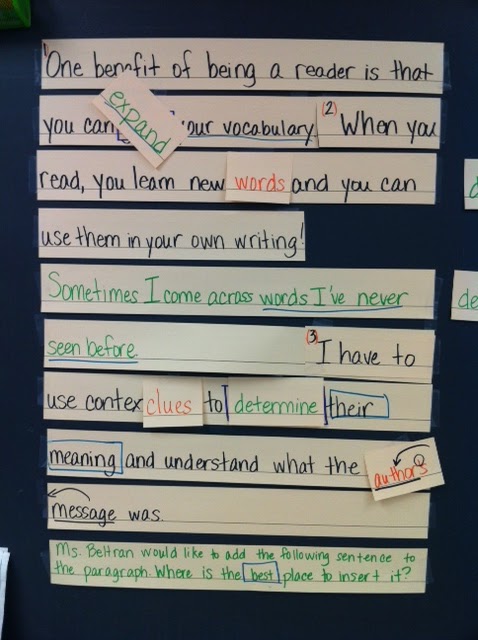 One benefit of being a reader is that
you can expand your vocabulary. (2) When you
read, you learn new words and you can
use them in your own writing!
Sometimes I come across words I've never
seen before. (3) I have to
use contex clues to determine their
meaning and understand what the author's
message was.
Ms. Beltran would like to add the following sentence to
the paragraph. Where is the best place to insert it?